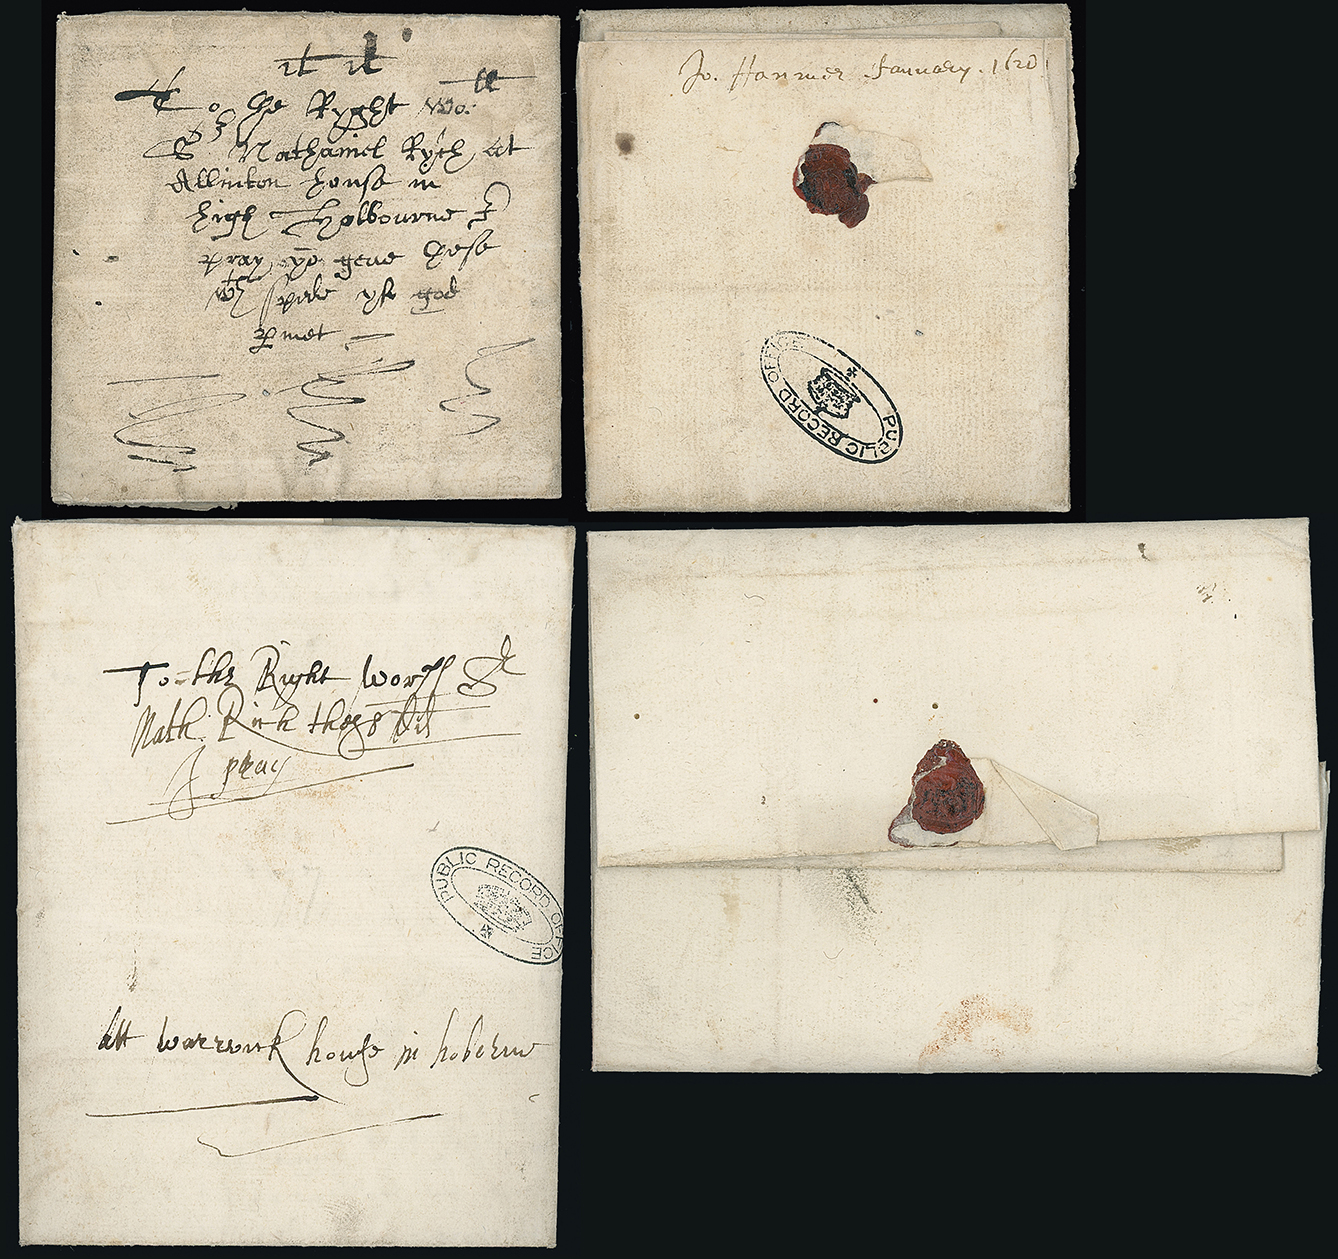 To the Ryght Wo:
Sr Nathaniel Rych, at
Allinton house in
high Holbourne I
pray yo geue these
wth spide yf god
pmet
Jo. Hanmer January. 1620
PUBLIC RECORD OFFICE
To the Right worpll Sr
Nath: Rich thes
I pray
PUBLIC RECORD OFFICE
att warrwick house in holborne